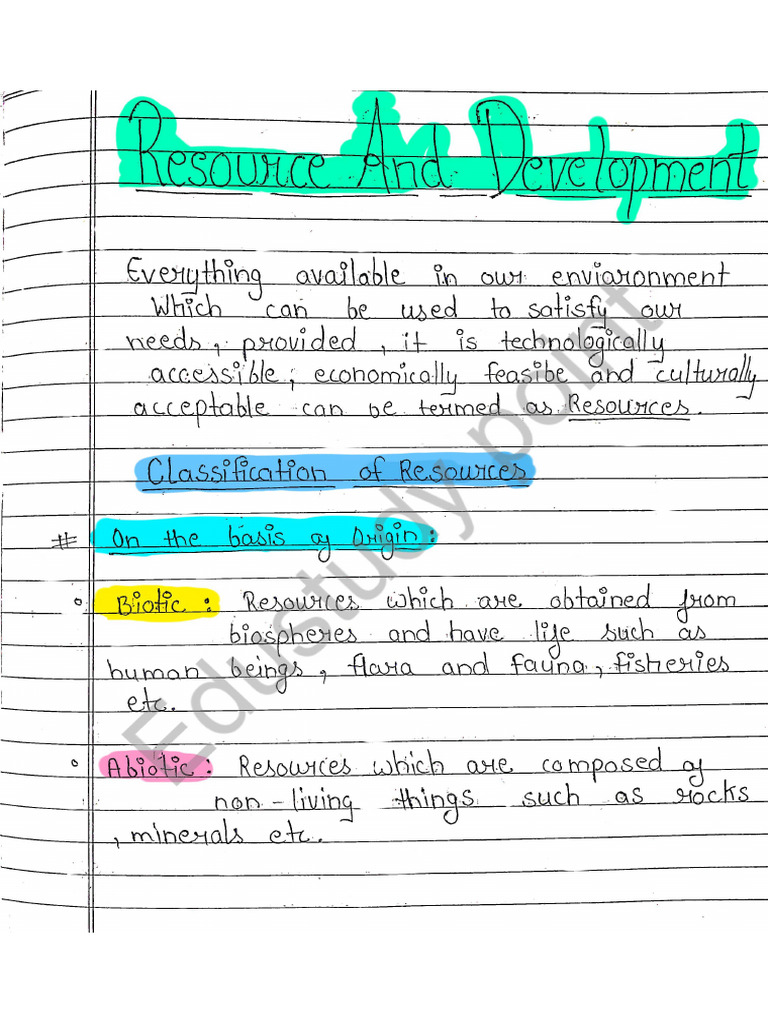 Resource And Development
Everything available in our enviaronment
Which can be used to satisfy our
needs, provided, it is technologically
accessible, economically feasibe and culturally
acceptable can be termed as Resources.
Classification of Resources
# On the basis of Origin:
° Biotic: Resources which are obtained from
biospheres and have life such as
human beings, flara and fauna, fisheries
etc.
° Abiotic: Resources which are composed of
non-living things such as rocks
, minerals etc.
Edustudy point